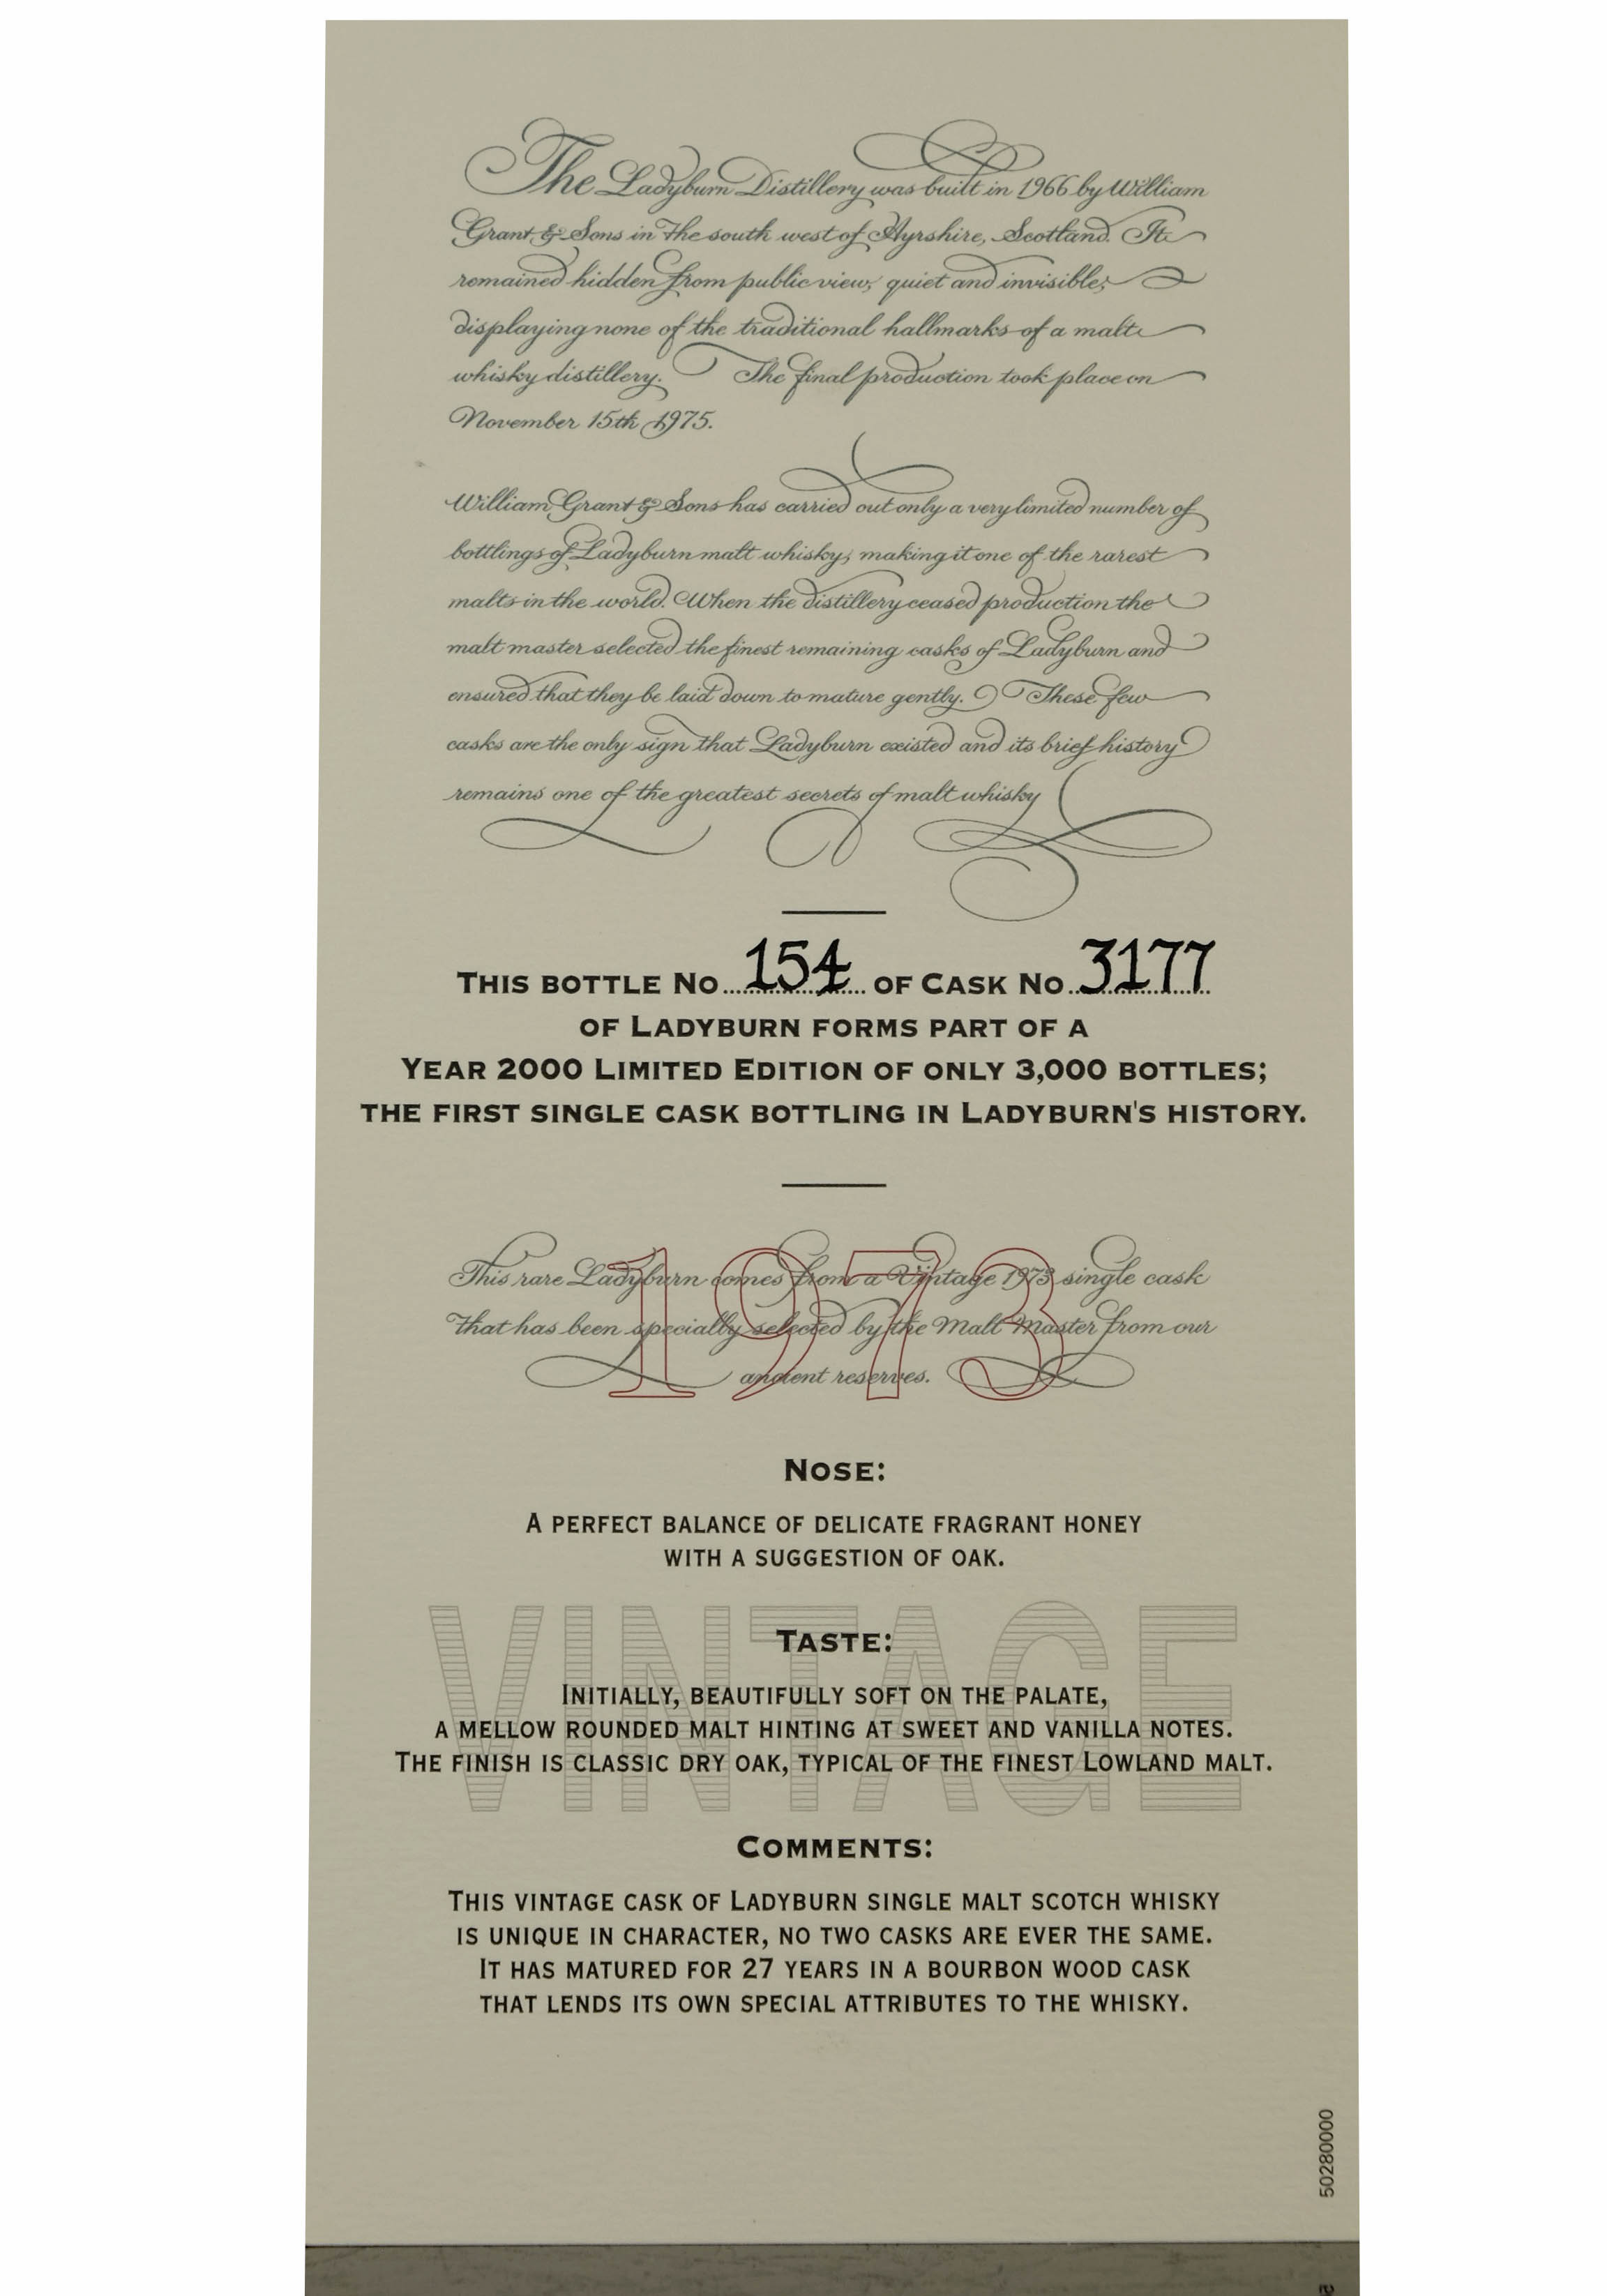 The Ladyburn Distillery was built in 1966 by William
Grant & Sons in the south west of Ayrshire, Scotland. It
remained hidden from public view, quiet and invisible;
displaying none of the traditional hallmarks of a malt
whisky distillery. The final production took place on
November 15th 1975.
William Grant & Sons has carried out only a very limited number of
bottlings of Ladyburn malt whisky; making it one of the rarest
malts in the world. When the distillery ceased production the
malt master selected the finest remaining casks of Ladyburn and
ensured that they be laid down to mature gently. These few
casks are the only sign that Ladyburn existed and its brief history
remains one of the greatest secrets of malt whisky
THIS BOTTLE NO 154 OF CASK NO 3177
OF LADYBURN FORMS PART OF A
YEAR 2000 LIMITED EDITION OF ONLY 3,000 BOTTLES;
THE FIRST SINGLE CASK BOTTLING IN LADYBURN'S HISTORY.
1973
This rare Ladyburn comes from a Vintage 1973 single cask
that has been specially selected by the Malt Master from our
ancient reserves.
NOSE:
A PERFECT BALANCE OF DELICATE FRAGRANT HONEY
WITH A SUGGESTION OF OAK.
VINTAGE
TASTE:
INITIALLY, BEAUTIFULLY SOFT ON THE PALATE,
A MELLOW ROUNDED MALT HINTING AT SWEET AND VANILLA NOTES.
THE FINISH IS CLASSIC DRY OAK, TYPICAL OF THE FINEST LOWLAND MALT.
COMMENTS:
THIS VINTAGE CASK OF LADYBURN SINGLE MALT SCOTCH WHISKY
IS UNIQUE IN CHARACTER, NO TWO CASKS ARE EVER THE SAME.
IT HAS MATURED FOR 27 YEARS IN A BOURBON WOOD CASK
THAT LENDS ITS OWN SPECIAL ATTRIBUTES TO THE WHISKY.
50280000